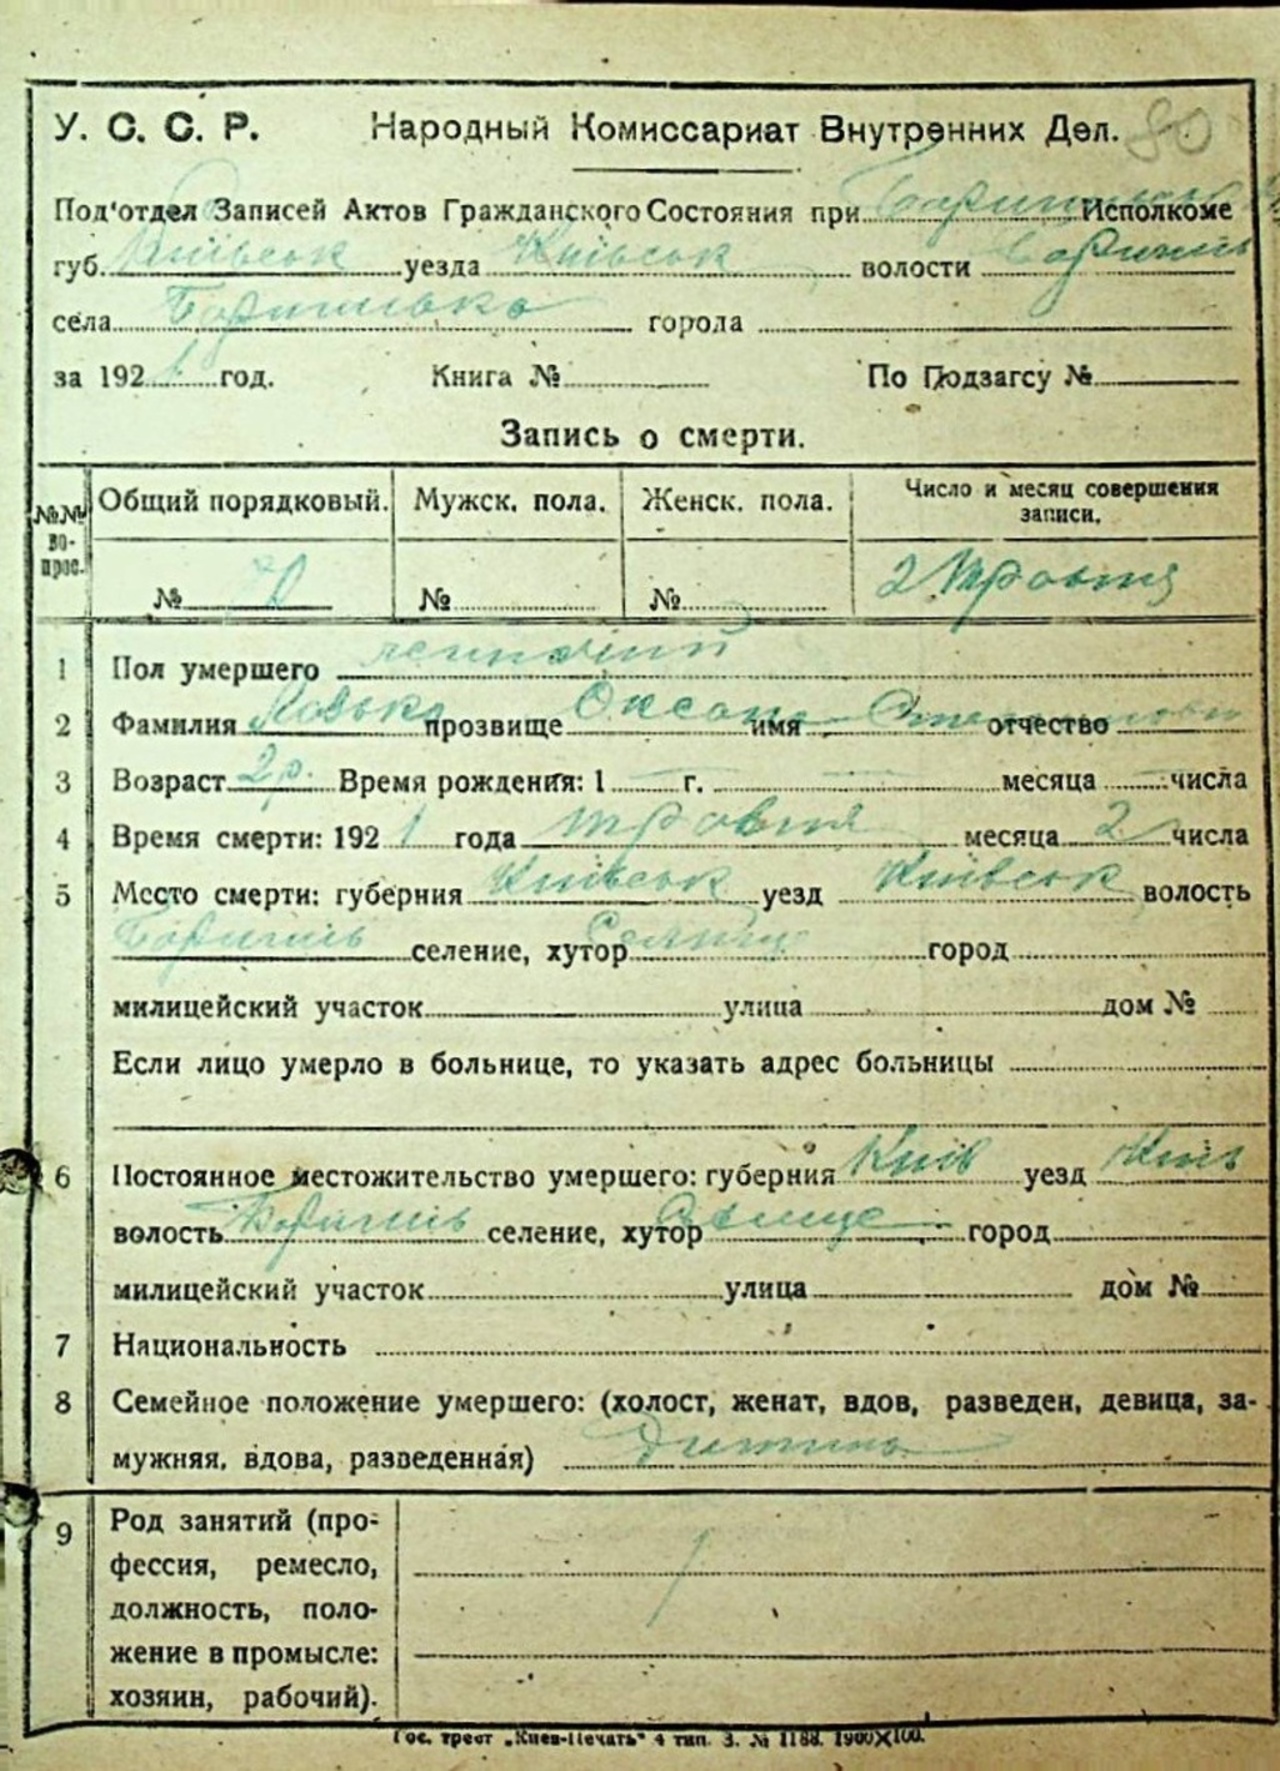 У. С. С. Р. Народный Комиссариат Внутренних Дел. 80
Под'отдел Записей Актов Гражданского Состояния при Исполкоме
губ. Київськ уезда Київськ волости Баришпіль
села за 192 1 год. города
Книга № По Подзагсу №
Запись о смерти.
№№ во- прос. Общий порядковый. Мужск. пола. Женск. пола. Число и месяц совершения записи.
№ № № 2 травня
1 Пол умершего жиночий
2 Фамилия прозвище Оксана имя отчество
3 Возраст 2 р. Время рождения: 1 г. месяца числа
4 Время смерти: 192 1 года травня месяца 2 числа
5 Место смерти: губерния Київськ уезд Київськ волость
селение, хутор город
милицейский участок улица дом №
Если лицо умерло в больнице, то указать адрес больницы
6 Постоянное местожительство умершего: губерния Київ уезд Київ
волость селение, хутор город
милицейский участок улица дом №
7 Национальность
8 Семейное положение умершего: (холост, женат, вдов, разведен, девица, за-
мужняя, вдова, разведенная) Дитина
9 Род занятий (про-
фессия, ремесло,
должность, поло-
жение в промысле:
хозяин, рабочий).
Гос. трест „Киев-Печать" 4 тип. З. № 1188. 1900X100.